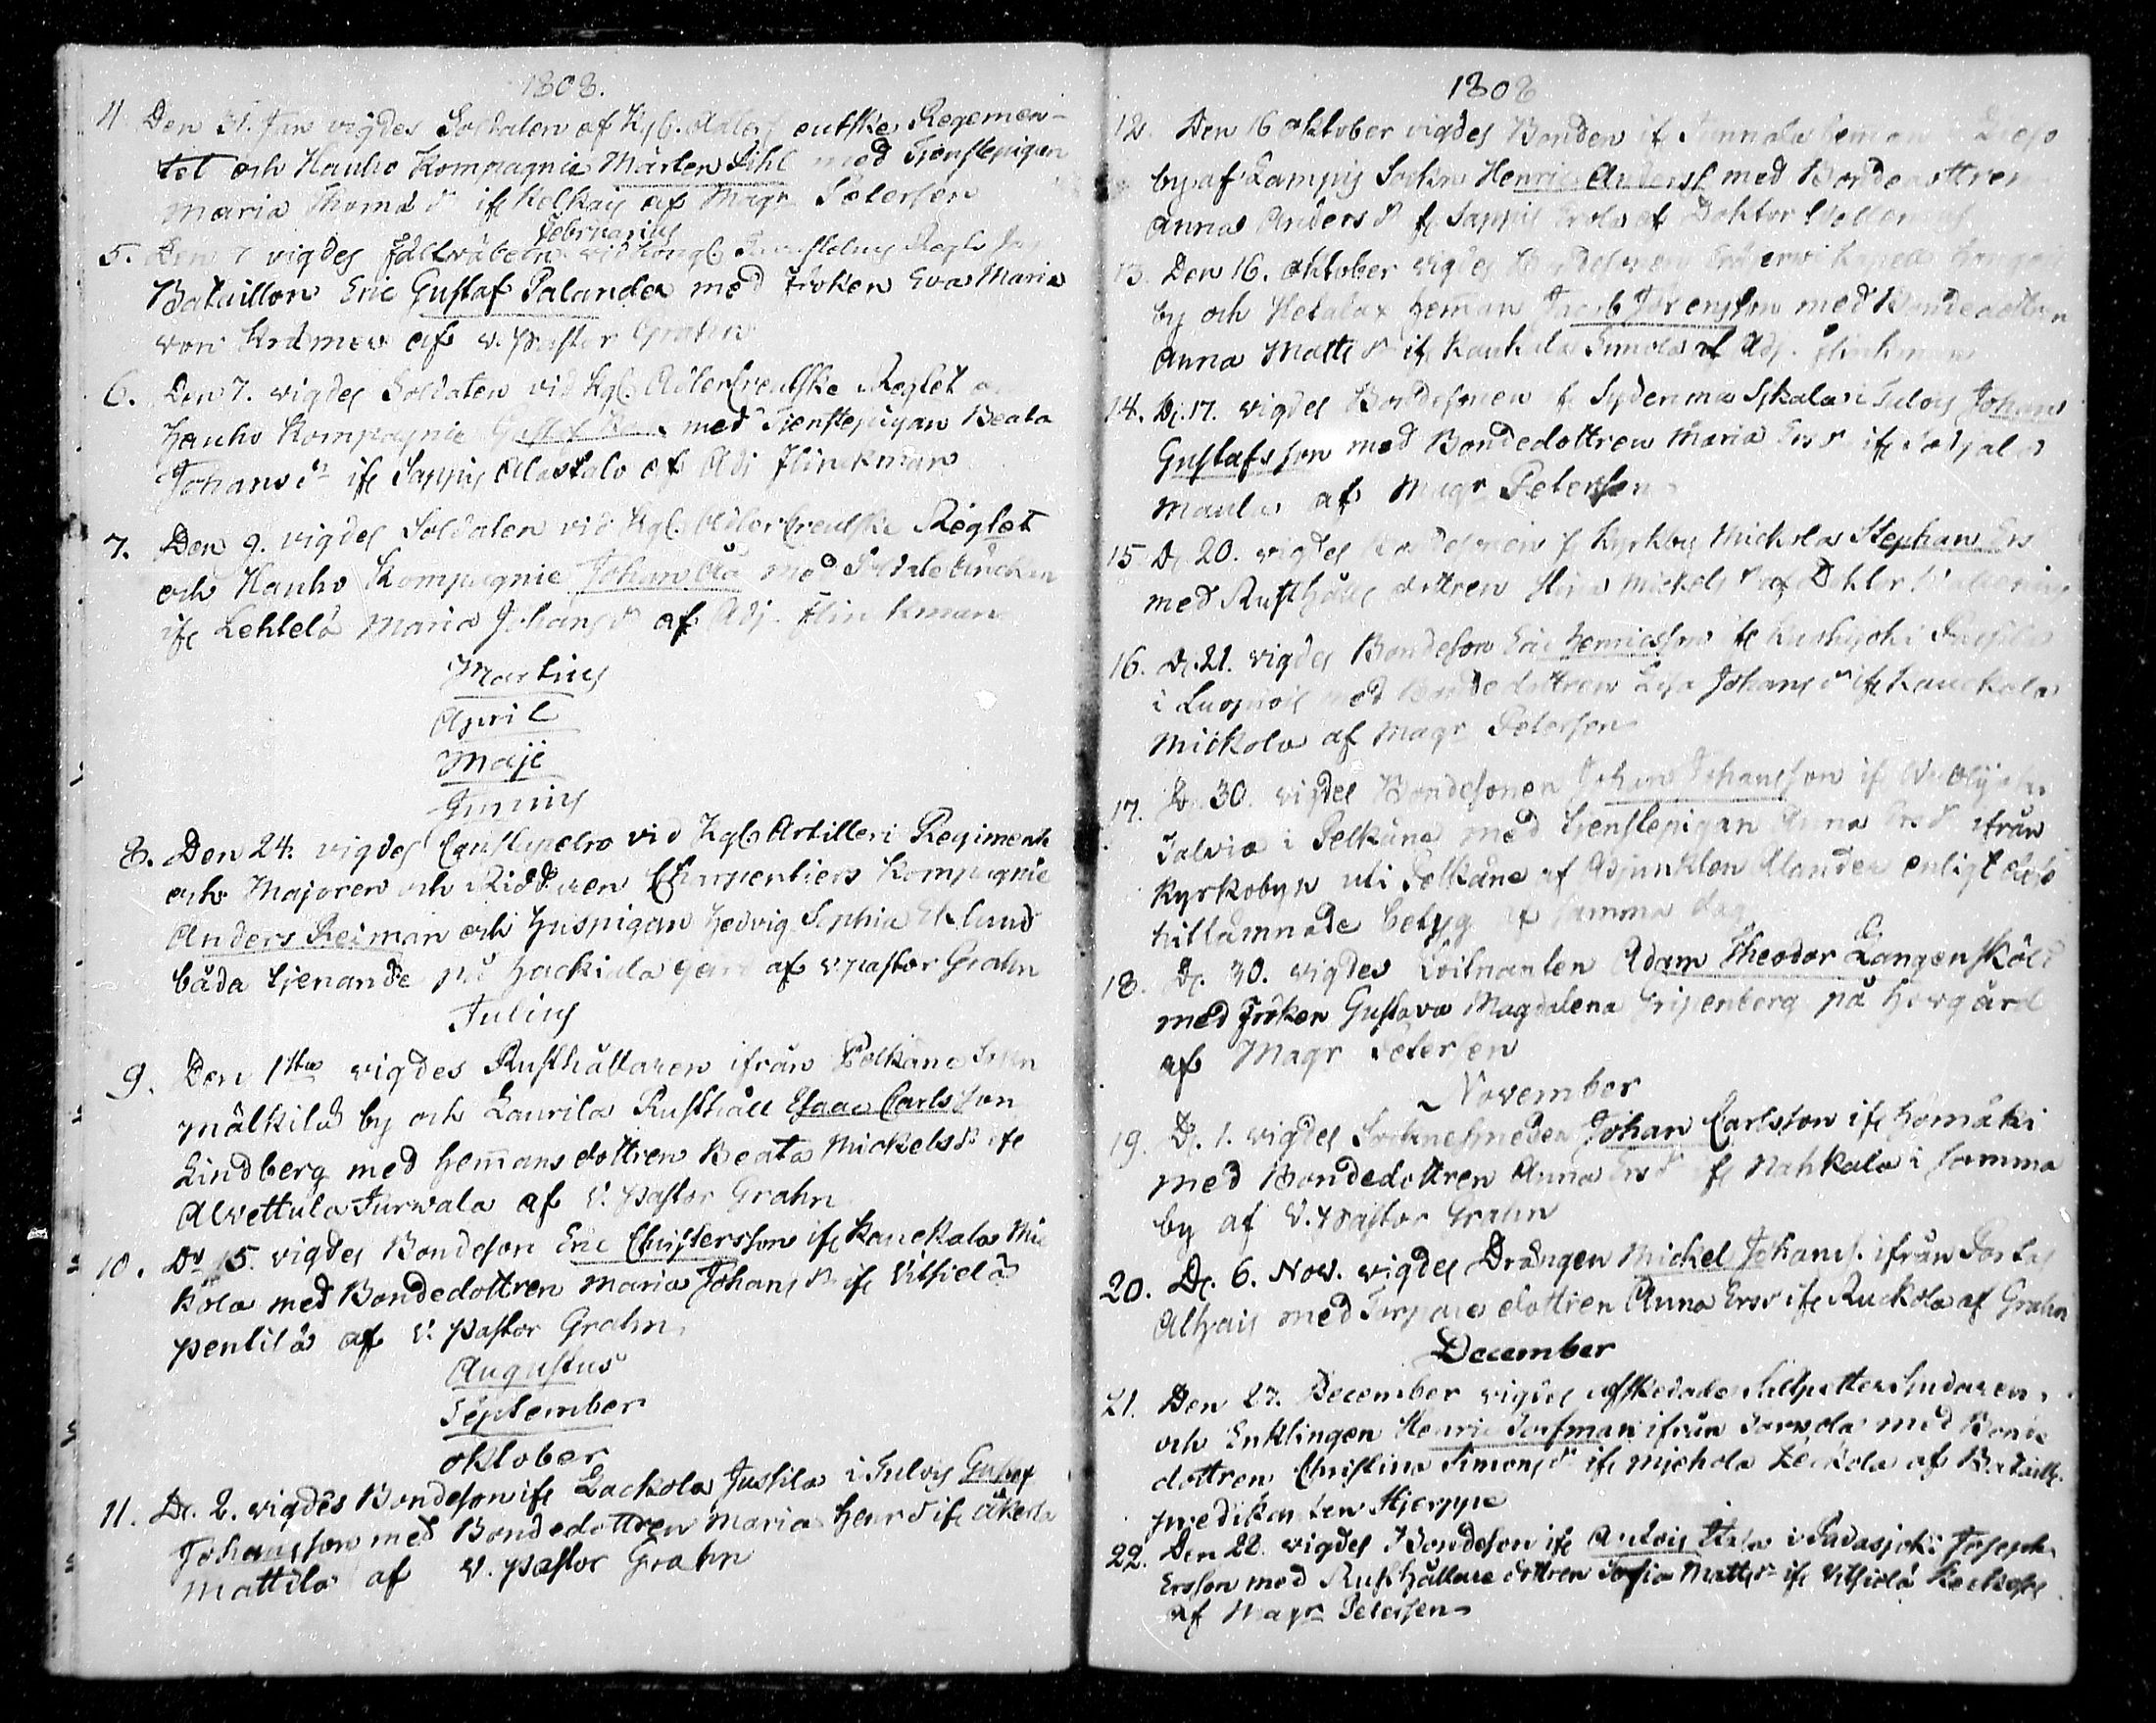 1808.
4. Den 31. Jan vigdes Soldaten af Kgl. Adler creutske Regemen-
tet och Hauho Kompagnie Mårten Pihl med Tjenstepigan
Maria Thomæ dr ifr Kelkais af Magr Petersen
Februarius
5. Den 7 vigdes Fältväbeln vid Kongl. Regts
Bataillon Eric Gustaf Palander med Fröken Eva Maria
von Kræmer af v. Pastor Grahn
6. Den 7. vigdes Soldaten vid Kgl. AdlerCreutske Reglet o
Hauho Kompagnie Gustaf med Tjenstepigan Beata
Johans dr ifr Sappis Alastalo af Adj Flinckman
7. Den 9. vigdes Soldaten vid Kgl. AdlerCreutske Reglet
och Hauho Kompagnie Johan Åå med Soldateenckan
ifr Lehtelä Maria Johans dr af Adj. Flinkman
Martius
April
Maji
Junius
8. Den 24. vigdes Constapeln vid Kgl. Artilleri Regimente
och Majoren och Riddaren Charpentiers Kompagnie
Anders Reiman och Huspigan Hedvig Sophia Eklund
båda tjenande på Hackiala gård af v. pastor Grahn
Julius
9. Den 1sta vigdes Rusthållaren ifrån Pelkäne Sokn
Mälkilä by och Laurila Rusthåll Esaac Carlsson
Lindberg med Hemans dottren Beata Mickels dr ifr
Alvettula Turvala af V. Pastor Grahn
10. Dn 15. vigdes Bondeson Eric Christersson ifr Kauckola Mic
kola med Bondedottren Maria Johans dr ifr Vitsiälä
Pentilä af V. Pastor Grahn
Augustus
September
Oktober
11. D. 2. vigdes Bondeson ifr Lackola Jussila i Tulois Gustaf
Johansson med Bondedottren Maria Henr dr ifr Okerla
Mattila af V. Pastor Grahn
1808
12. Den 16 Oktober vigdes Bonden ifr Hemman
by af Lampis Sockn Henric Andersf med Bondedottren
Anna Anders dr fr Sappis af Doktor
13. Den 16. Oktober vigdes Kapell
by och Hetalax Heman Jacob Jörensson med Bondedottren
Anna Matts dr ifr Kankila Simola af Adj. Flinkman
14. D. 17. vigdes Bondesonen fr Sydenma Sskala i Tulois Johan
Gustafsson med Bondedottren Maria Ers dr ifr
Maula af Magr Petersen
15. D. 20. vigdes Bondesonen fr Kyrkby Mickola Stephan Ers
med Rusthålls dottren Mickels dr af Doktor
16. D. 21. vigdes Bondeson Eric Henricsson fr Kuohijoki
i Luopiois med Bondedottren Lisa Johans dr ifr Kauckola
Mickola af Magr Petersen
17. D. 30. vigdes Bondesonen Johan Johansson ifr
i Pelkäne med Tjenstepigan Anna Ers dr ifrån
Kyrkobyn uti Pelkäne af Adjunkten Alander enligt des
hitlämnade betyg af samma dag
18. D. 30. vigdes Löitnanten Adam Theodor L. Langenskiöld
med Fröken Gustava Magdalena Gripenberg på Hovgård
af Magr Petersen
November
19. D. 1. vigdes Socknesmeden Johan Carlsson ifr Homäki
med Bondedottren Anna Ers dr ifr Nahkala i samma
by af V. Pastor Grahn
20. D. 6. Nov. vigdes Drängen Mickel Johans. ifrån Portas
Alhais med Torpare dottren Anna Ers dr ifr Ruckola af Grahn
December
21. Den 27. December vigdes afskedade Salpettersiudaren
och Enklingen Henric Torfman ifrån med Bonde
dottren Christina Simons dr ifr Miehola Leckola af Bataills.
predikanten Hjerppe
22. Den 28. vigdes Bondeson ifr i Padasjoki Joseph
Ersson med Rusthållare dottren Sofia Matts dr ifr Vitsiälä
af Magr Petersen